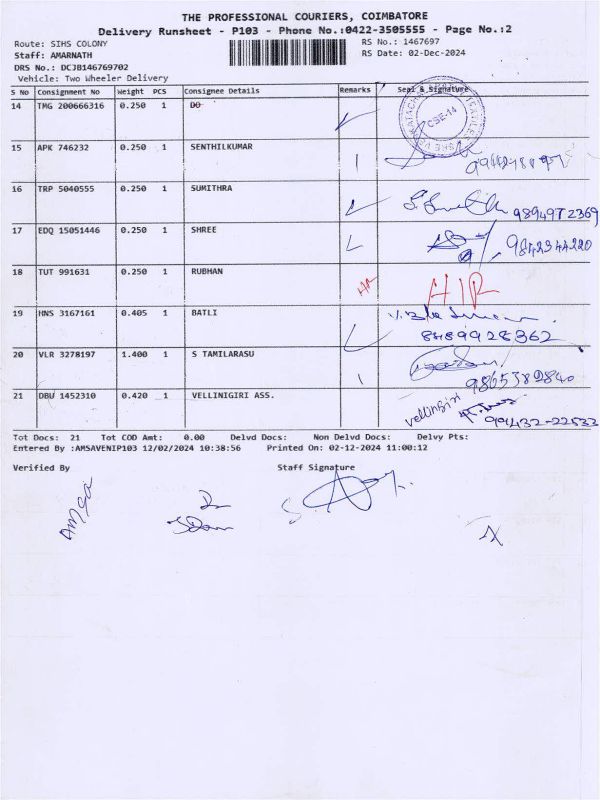 THE PROFESSIONAL COURIERS, COIMBATORE
Delivery Runsheet - P103 - Phone No.:0422-3505555 - Page No.:2
Route: SIHS COLONY
RS No.: 1467697
Staff: AMARNATH
RS Date: 02-Dec-2024
DRS No.: DCJB146769702
Vehicle: Two Wheeler Delivery
S No Consignment No Weight PCS Consignee Details Remarks Seal & Signature
14 TMG 200666316 0.250 1 DO
CSE-14
15 APK 746232 0.250 1 SENTHILKUMAR
16 TRP 5040555 0.250 1 SUMITHRA
9894972369
17 EDQ 15051446 0.250 1 SHREE
9842344220
18 TUT 991631 0.250 1 RUBHAN
19 HNS 3167161 0.405 1 BATLI
8489928362
20 VLR 3278197 1.400 1 S TAMILARASU
9865382840
21 DBU 1452310 0.420 1 VELLINGIRI ASS.
vellingiri
99432-22533
Tot Docs: 21 Tot COD Amt: 0.00 Delvd Docs: Non Delvd Docs: Delvy Pts:
Entered By :AMSAVENIP103 12/02/2024 10:38:56 Printed On: 02-12-2024 11:00:12
Verified By Staff Signature